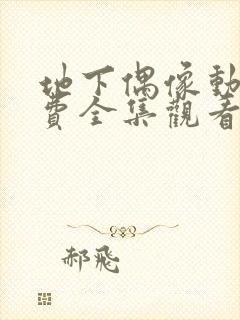 地下偶像動
費全集觀看
郝飛